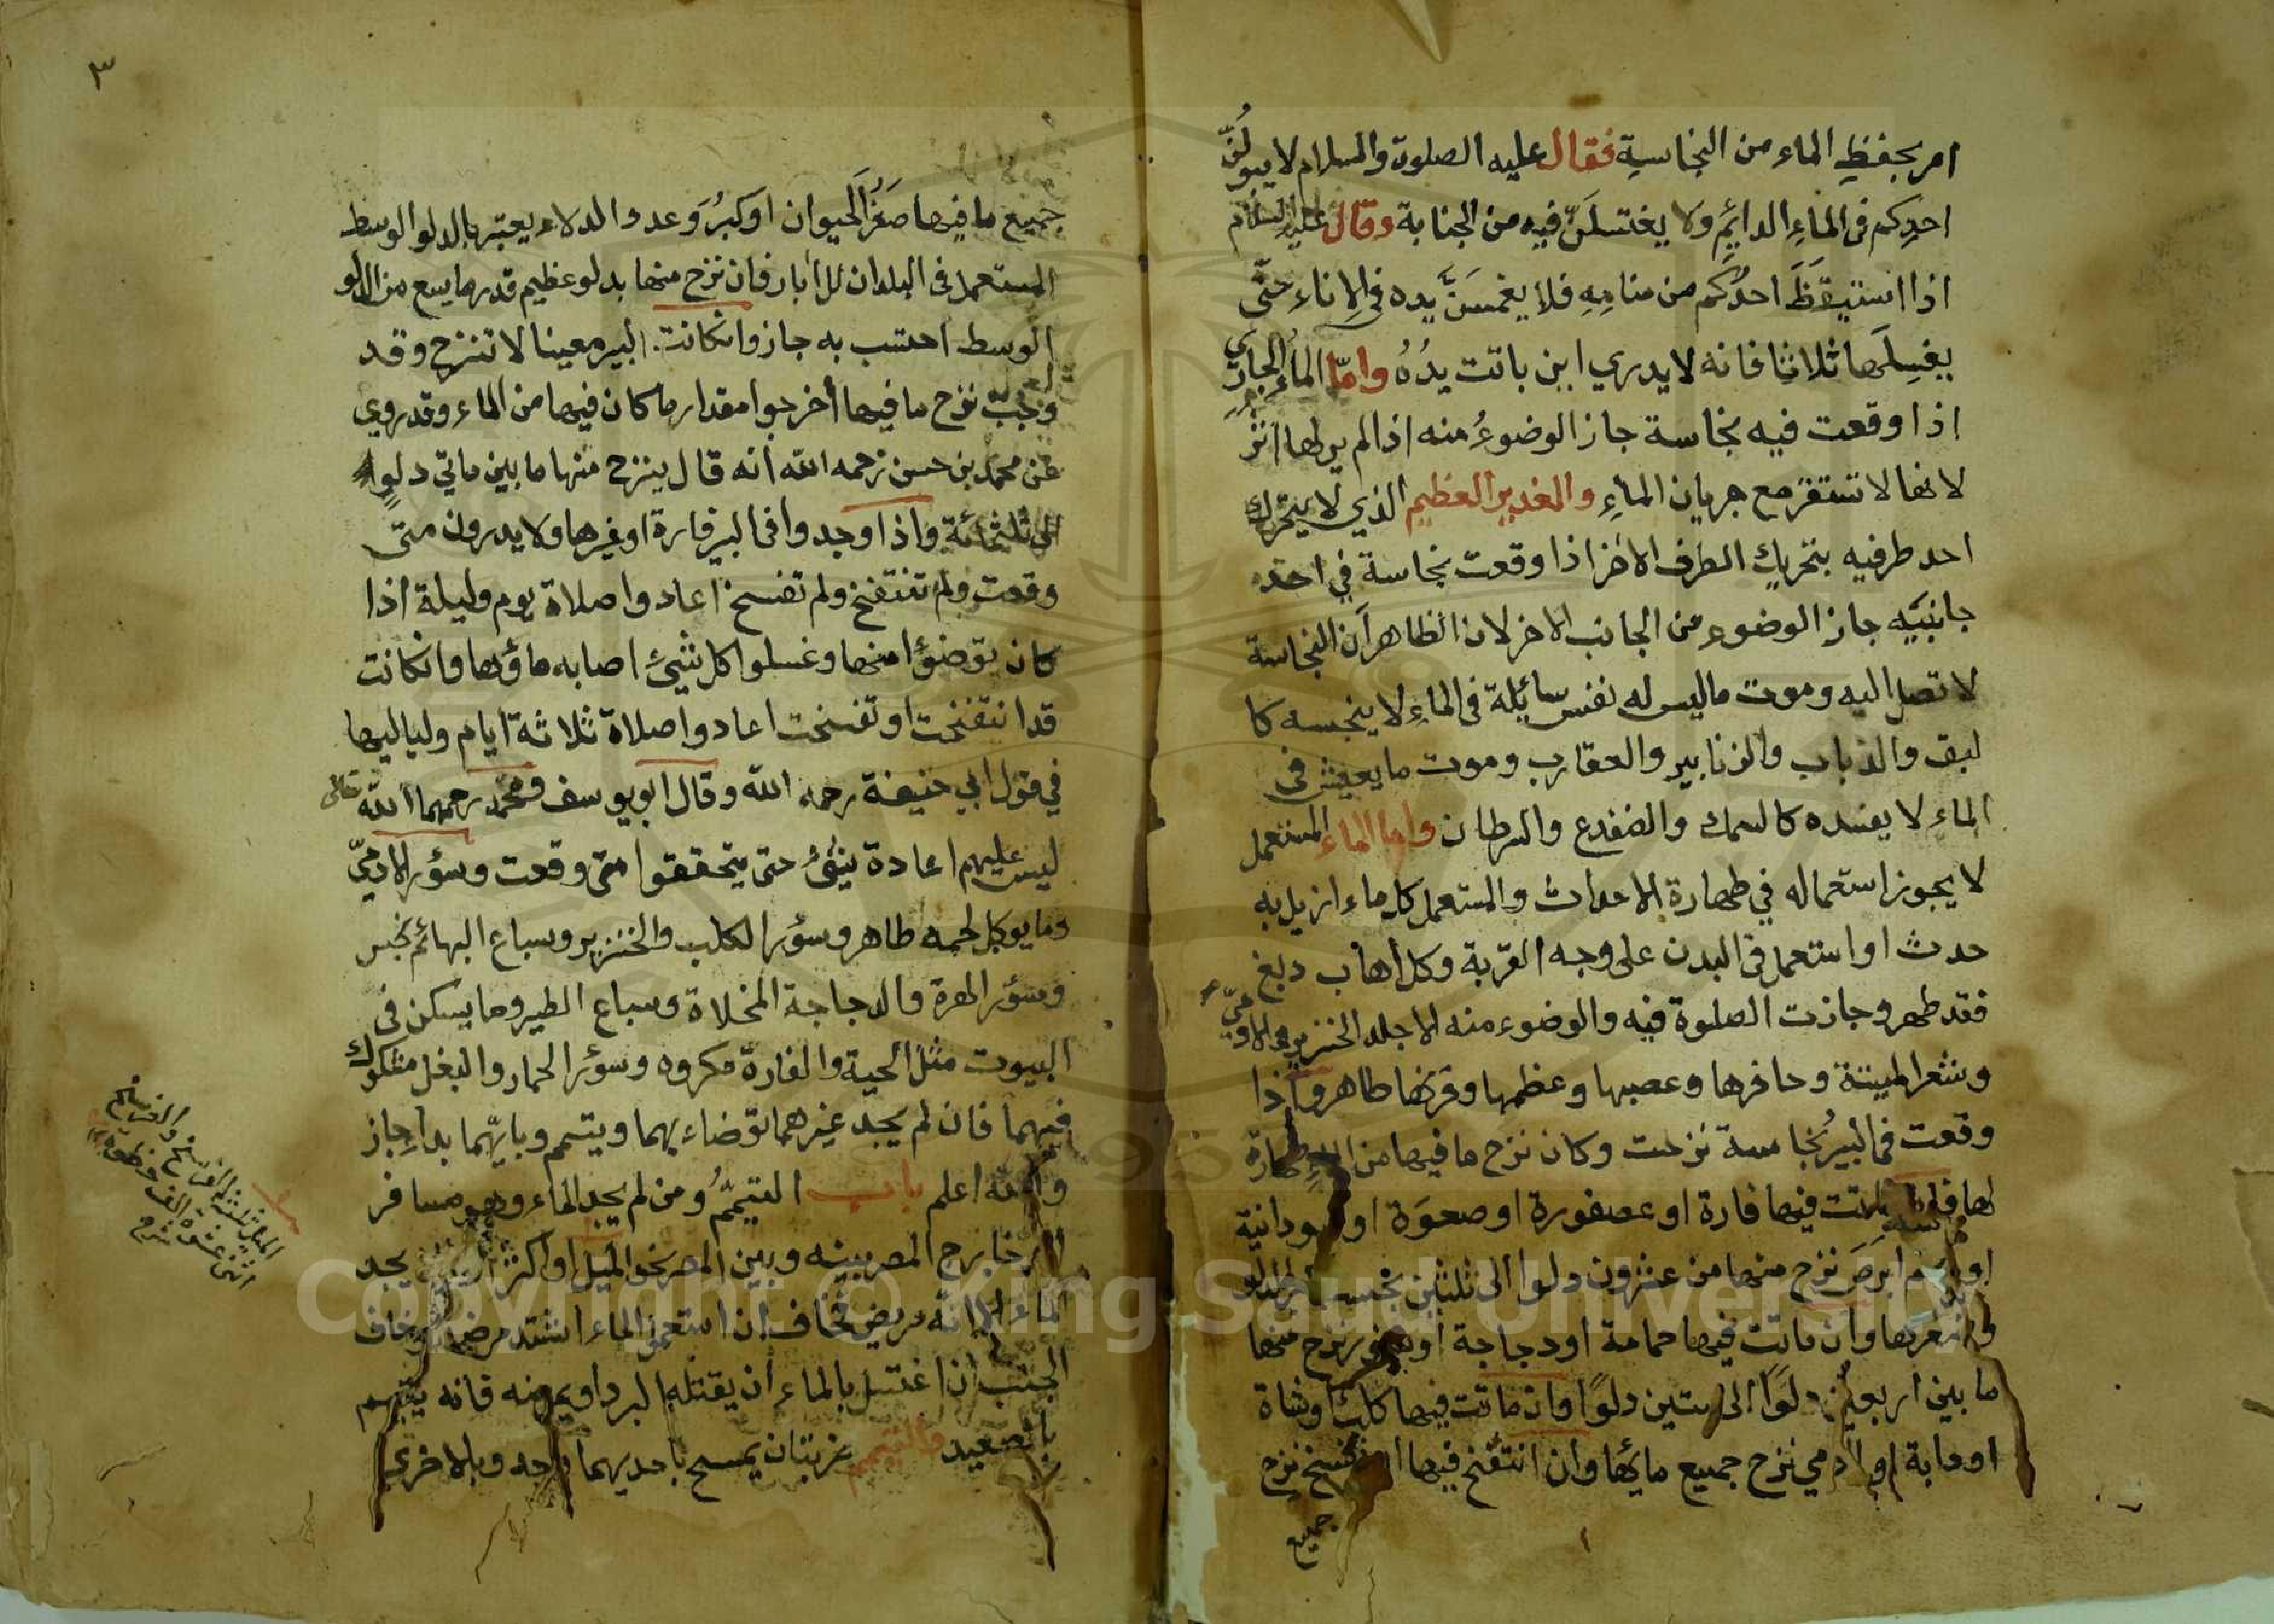 امر بحفظ الماء من النجاسةِ فقال عليه الصلوة والسلام لا يبولَنّ
احدكم فى الماءِ الدائمِ ولا يغتسلَنّ فيه من الجنابة وقال عليه السلام
اذا استيقظَ احدُكم من منامِهِ فلا يغمسَنَّ يده فى الإناءِ حتّى
يغسِلَها ثلاثا فانه لا يدري اين باتت يدُهُ وامّا الماءُ الجاري
اذا وقعت فيه نجاسة جاز الوضوءُ منه اذا لم يرلها اثر
لانها لا تستقر مع جريان الماءِ والغدير العظيم الذي لا يتحرك
احد طرفيه بتحريك الطرف الاخر اذا وقعت نجاسة في احد
جانبَيه جاز الوضوء من الجانب الاخر لان الظاهر أن النجاسة
لا تصل اليه وموت ما ليس له نفس سائلة فى الماءِ لا ينجسه كا
لبق والذباب والزنابير والعقارب وموت ما يعيش فى
الماء لا يفسده كالسمك والضفدع والسرطان واما الماء المستعمل
لا يجوز استعماله في طهارة الاحداث والمستعمل كل ماء ازيل به
حدث او استعمل فى البدن على وجه القربة وكل اهاب دبغ
فقد طهر وجازت الصلوة فيه والوضوء منه الا جلد الخنزير والادميّ
وشعر الميتة وحافرها وعصبها وعظمها وقرنها طاهر واذا
وقعت فى البير نجاسة نزحت وكان نزح ما فيها من الماء طهارة
لها فان ماتت فيها فارة او عصفورة او صعوَة او سودانية
او سام ابرصَ نزح منها من عشرون دلوا الى ثلثين بحسب كبر الدلو
وصغرها وان ماتت فيها حمامة او دجاجة او سنور نزح منها
ما بين اربعين دلوًا الى ستين دلوًا وان ماتت فيها كلب او شاة
او دابة او ادمي نزح جميع مائها وان انتفخ فيها او تفسخ نزح
جميع
٣
جميع ما فيها صَغُرَ الحيوان او كبُرَ وعدد الدلاء يعتبر بالدلو الوسط
المستعمل فى البلدان للأبار فان نزح منها بدلو عظيم قدر ما يسع من الدلو
الوسط احتسب به جاز وانكانت البير معينا لا تنزح وقد
وجبت نزح ما فيها أخرجوا مقدار ما كان فيها من الماء وقد روي
عن محمد بن حسن رحمه الله أنه قال ينزح منها ما بين ماتي دلوٍ
الى ثلثمائة واذا وجدوا فى البير فارة او غيرها ولا يدرون متى
وقعت ولم تنتفخ ولم تفسخ اعادوا صلاة يوم وليلة اذا
كان توضؤا منها وغسلوا كل شيئ اصابه ماؤها وانكانت
قد انتفخت او تفسخت اعادوا صلاة ثلاثة ايام ولياليها
في قول ابي حنيفة رحمه الله وقال ابو يوسف ومحمد رحمهما الله تعالى
ليس عليهم اعادة شئ حتى يتحققوا متى وقعت وسؤر الادميّ
وما يوكل لحمه طاهر وسؤر الكلب والخنزير وسباع البهائم نجس
وسؤر الهرة والدجاجة المخلاة وسباع الطير وما يسكن فى
البيوت مثل الحية والفارة مكروه وسؤر الحمار والبغل مشكوك
فيهما فان لم يجد غيرهما توضاء بهما ويتمم وبايّهما بدا جاز
والله اعلم باب التيمّمُ ومن لم يجد الماء وهو مسافر
او خارج المصر بينه وبين المصر نحو الميل او اكثر يجد
الماء الا انه مريض فخاف ان استعمل الماء اشتد مرضه او خاف
الجنب ان اغتسل بالماء ان يقتله البرد او يمرضه فانه يتيمم
بالصعيد والتيمم ضربتان يمسح باحديهما وجه وبالاخرى
الميل ثلث الفرسخ والفرسخ
اثنى عشر الف